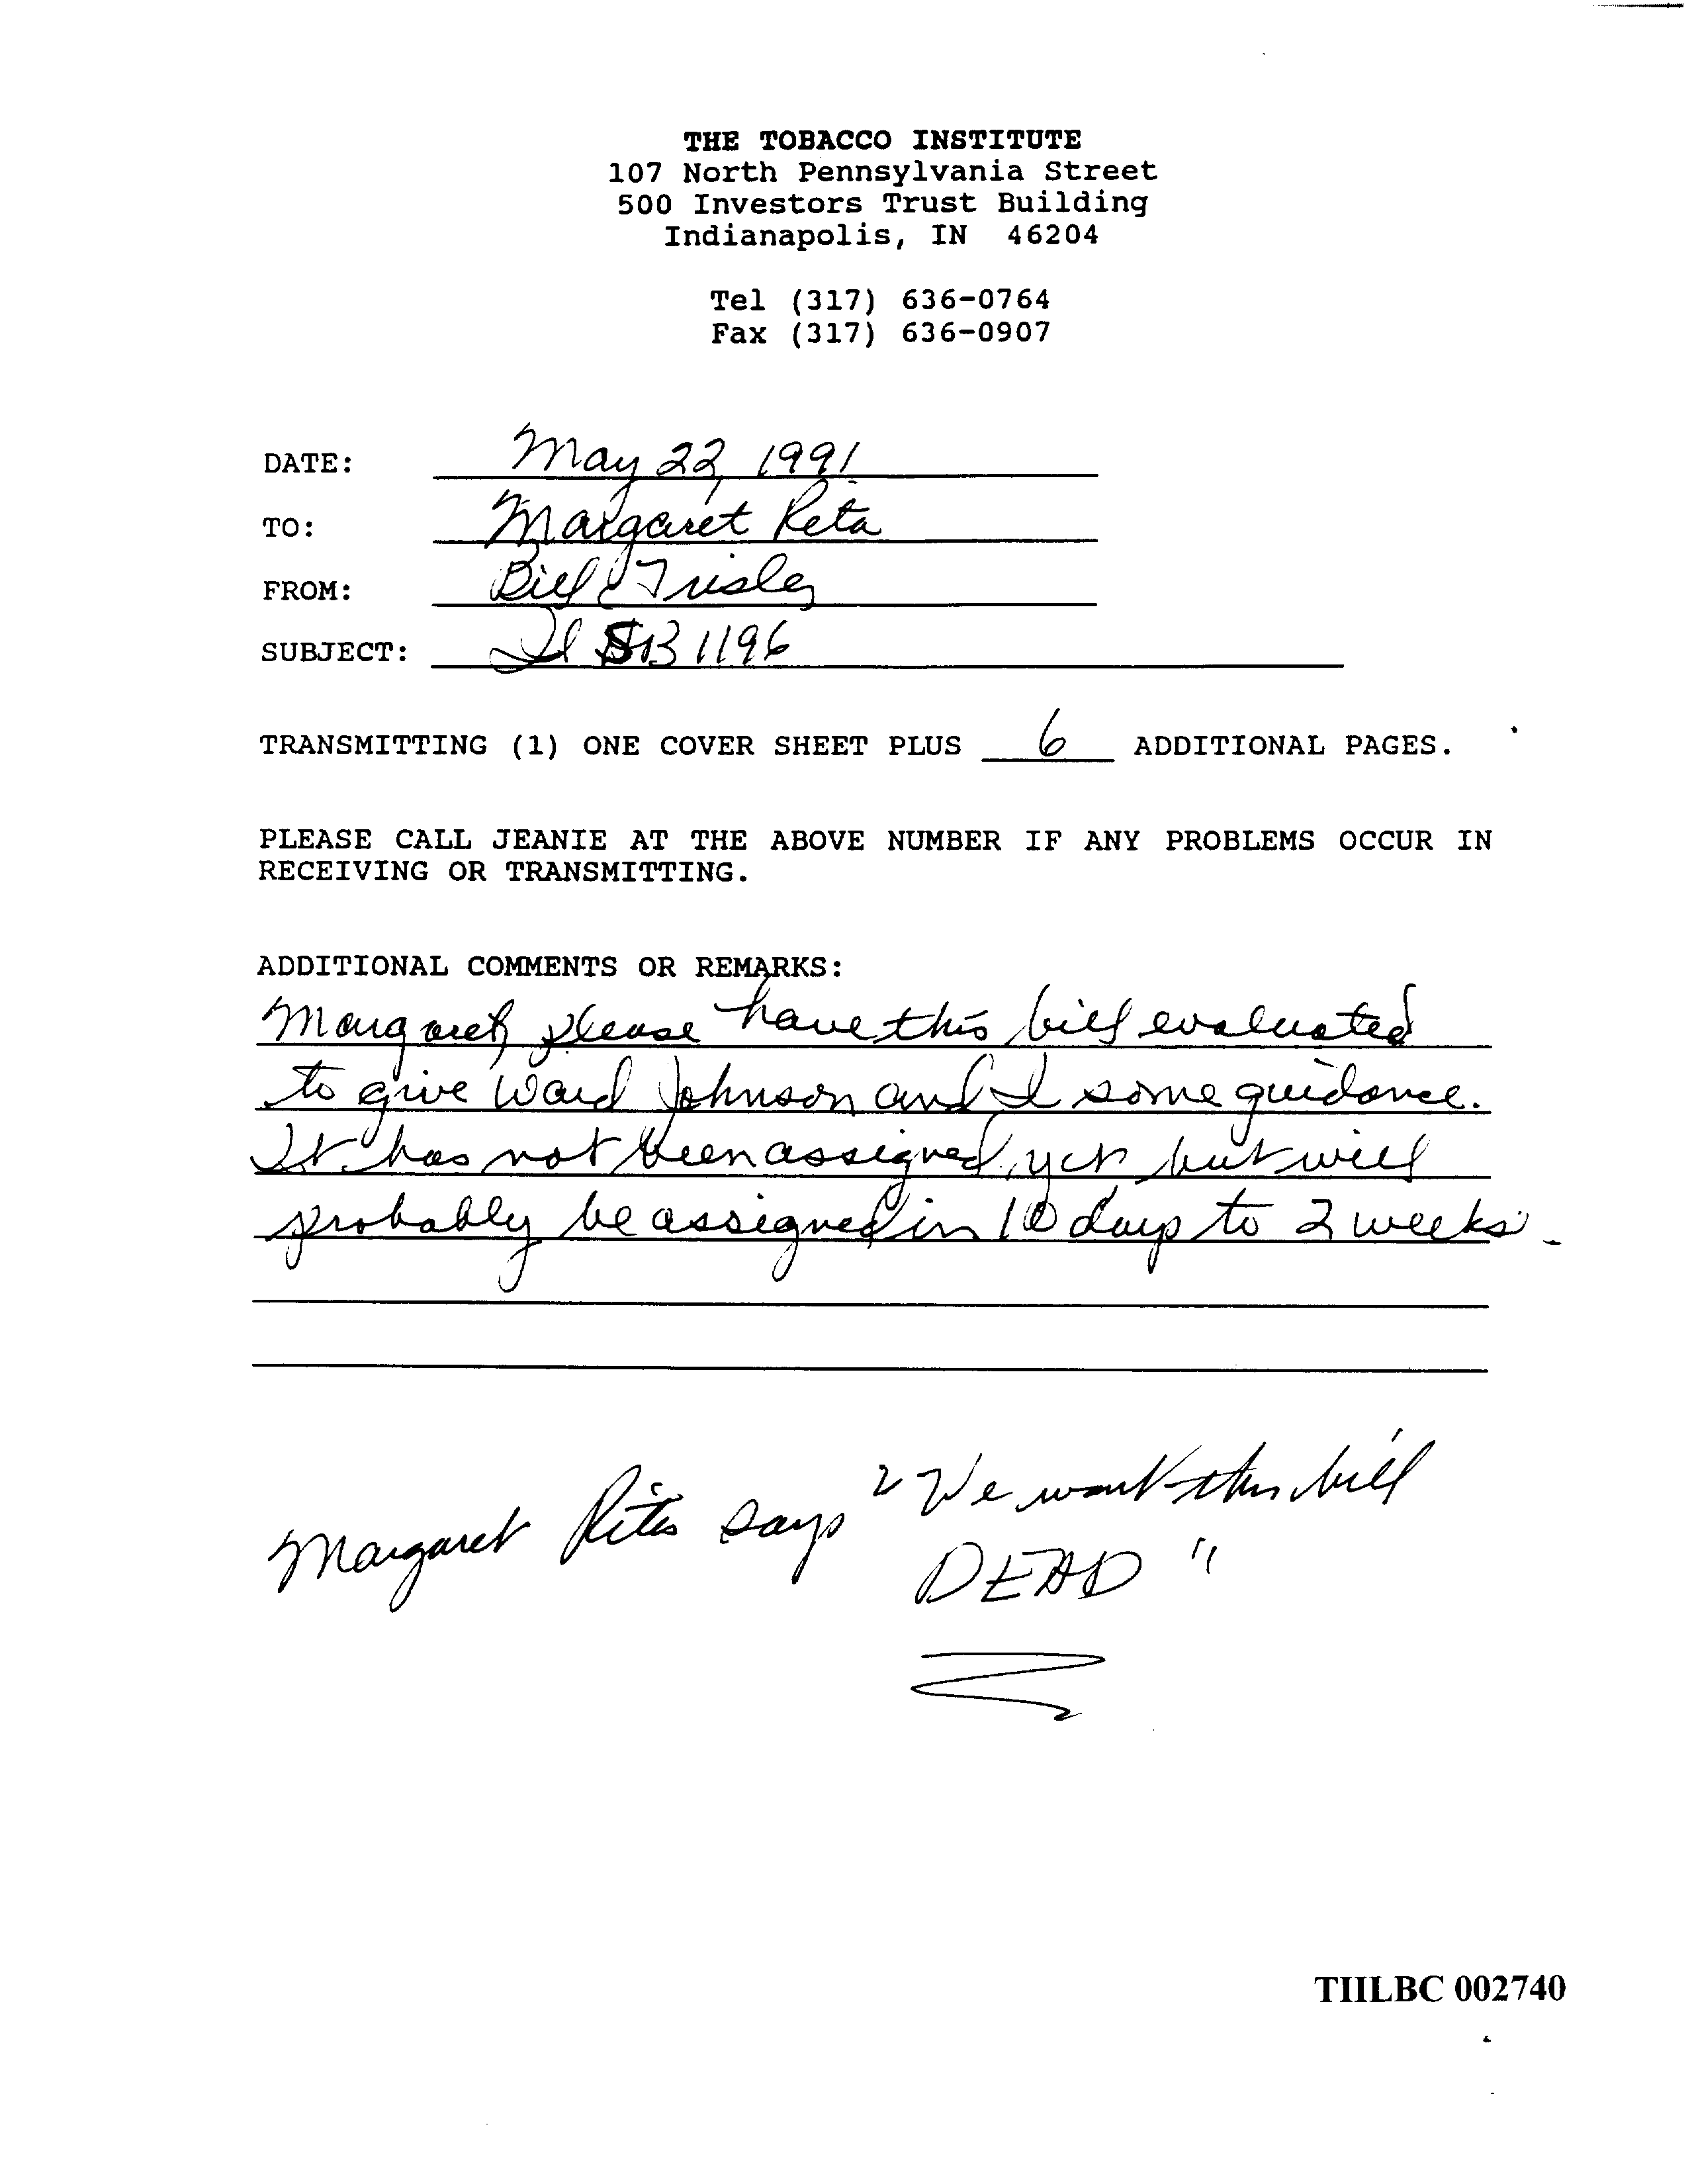 THE TOBACCO INSTITUTE
107 North Pennsylvania Street
500 Investors Trust Building
Indianapolis, IN 46204
Tel (317) 636-0764
Fax (317) 636-0907
DATE: May 22, 1991
TO: Margaret Rita
FROM: Bill Trisler
SUBJECT: Il SB 1196
TRANSMITTING (1) ONE COVER SHEET PLUS 6 ADDITIONAL PAGES.
PLEASE CALL JEANIE AT THE ABOVE NUMBER IF ANY PROBLEMS OCCUR IN
RECEIVING OR TRANSMITTING.
ADDITIONAL COMMENTS OR REMARKS:
Margaret, please have this bill evaluated
to give Ward Johnson and I some guidance.
It has not been assigned yet but will
probably be assigned in 10 days to 2 weeks.
Margaret Rita says "We want this bill
DEAD"
TIILBC 002740